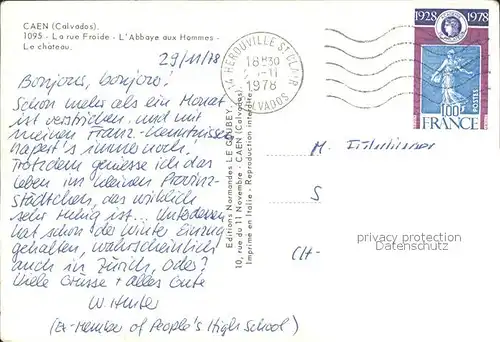 CAEN (Calvados).
1095 - La rue Froide - L'Abbaye aux Hommes -
Le château.
29/11/78
Bonjour, bonjour!
Schon mehr als ein Monat
ist verstrichen und mit
meinen Franz.-Kenntnissen
hapert's immer noch!
Trotzdem geniesse ich das
Leben im kleinen Provinz-
städtchen, das wirklich
sehr ruhig ist... Unterdessen
hat schon der Winter Einzug
gehalten, wahrscheinlich
auch in Zürich, oder?
Viele Grüsse + alles Gute
(Ex-Member of People's High School)
Editions Normandes LE GOUBEY.
10, rue du 11 Novembre - CAEN (Calvados).
Imprimé en Italie - Reproduction interdite
14 HEROUVILLE ST CLAIR
18H30
-11
1978
CALVADOS
1928 1978
100
POSTES
FRANCE
M.
S
CH-
privacy protection
Datenschutz